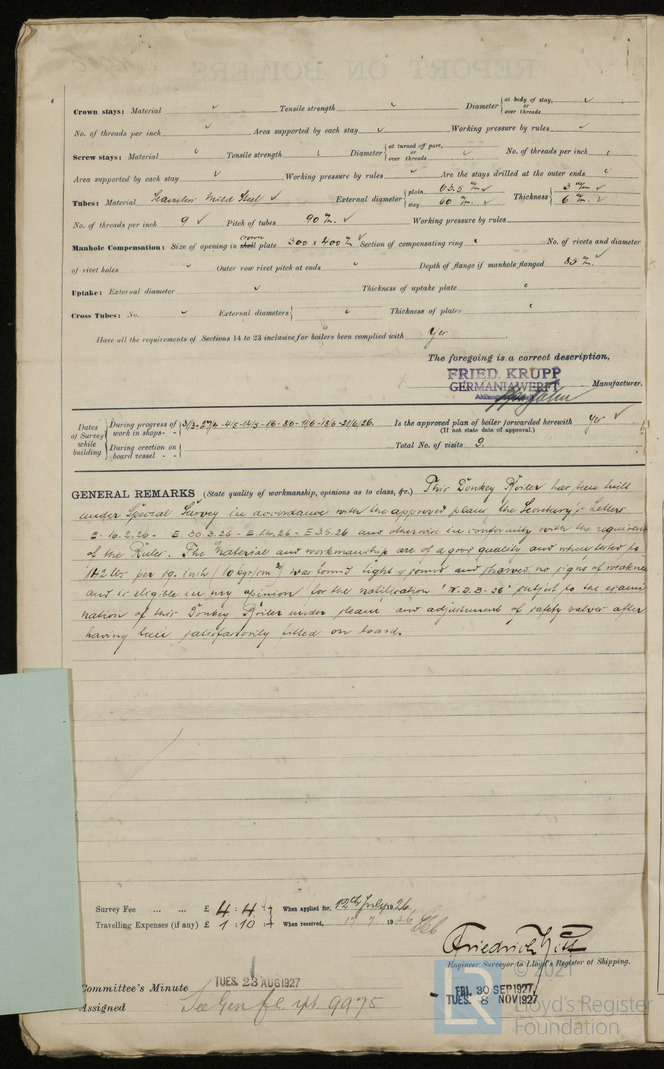 REPORT ON BOILERS
Crown stays: Material ✓ Tensile strength ✓ Diameter { at body of stay, or over threads ✓
No. of threads per inch ✓ Area supported by each stay ✓ Working pressure by rules ✓
Screw stays: Material ✓ Tensile strength Diameter { at turned off part, or over threads ✓ No. of threads per inch
Area supported by each stay Working pressure by rules ✓ Are the stays drilled at the outer ends
Tubes: Material Seamless Mild Steel ✓ External diameter { plain 63.5 m/m ✓ stay 60 m/m ✓ Thickness { 3 m/m ✓ 6 m/m ✓
No. of threads per inch 9 ✓ Pitch of tubes 90 m/m ✓ Working pressure by rules
Manhole Compensation: Size of opening in crown shell plate 300 x 400 m/m ✓ Section of compensating ring No. of rivets and diameter
of rivet holes Outer row rivet pitch at ends Depth of flange if manhole flanged 85 m/m ✓
Uptake: External diameter ✓ Thickness of uptake plate
Cross Tubes: No. External diameters { Thickness of plates
Have all the requirements of Sections 14 to 23 inclusive for boilers been complied with Yes
The foregoing is a correct description,
FRIED. KRUPP
GERMANIAWERFT
Manufacturer.
Dates of Survey while building { During progress of work in shops - - Is the approved plan of boiler forwarded herewith yes ✓
(If not state date of approval.)
During erection on board vessel - - Total No. of visits 9.
GENERAL REMARKS (State quality of workmanship, opinions as to class, &c.) This Donkey Boiler has been built
under Special Survey in accordance with the approved plans the Secretary's Letters
E. 16.2.26 - E. 30.3.26 - E. 14.26 - E 3.5.26 and otherwise in conformity with the requirem
of the Rules. The Material and workmanship are of a good quality and when tested to
142 lbs per sq. inch (10 kgs/cm²) was found tight & sound and showed no signs of weakness
and is eligible in my opinion for the notification subject to the exami
nation of this Donkey Boiler under steam and adjustement of safety valves after
having been satisfactorily fitted on board.
Survey Fee ... ... £ 4 : 4 : When applied for, 12th July 1926
Travelling Expenses (if any) £ 1 : 10 : When received, 19 26
Engineer Surveyor to Lloyd's Register of Shipping.
Committee's Minute TUES. 23 AUG 1927
FRI. 30 SEP 1927
TUES. 8 NOV 1927
Assigned See Gen f.e. rpt. 9975
© 2021
Lloyd's Register
Foundation
LR